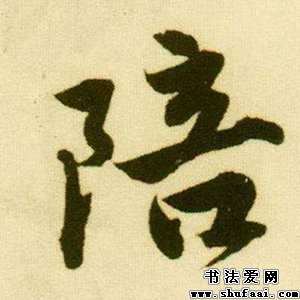 陪
书法爱网
www.shufaai.com